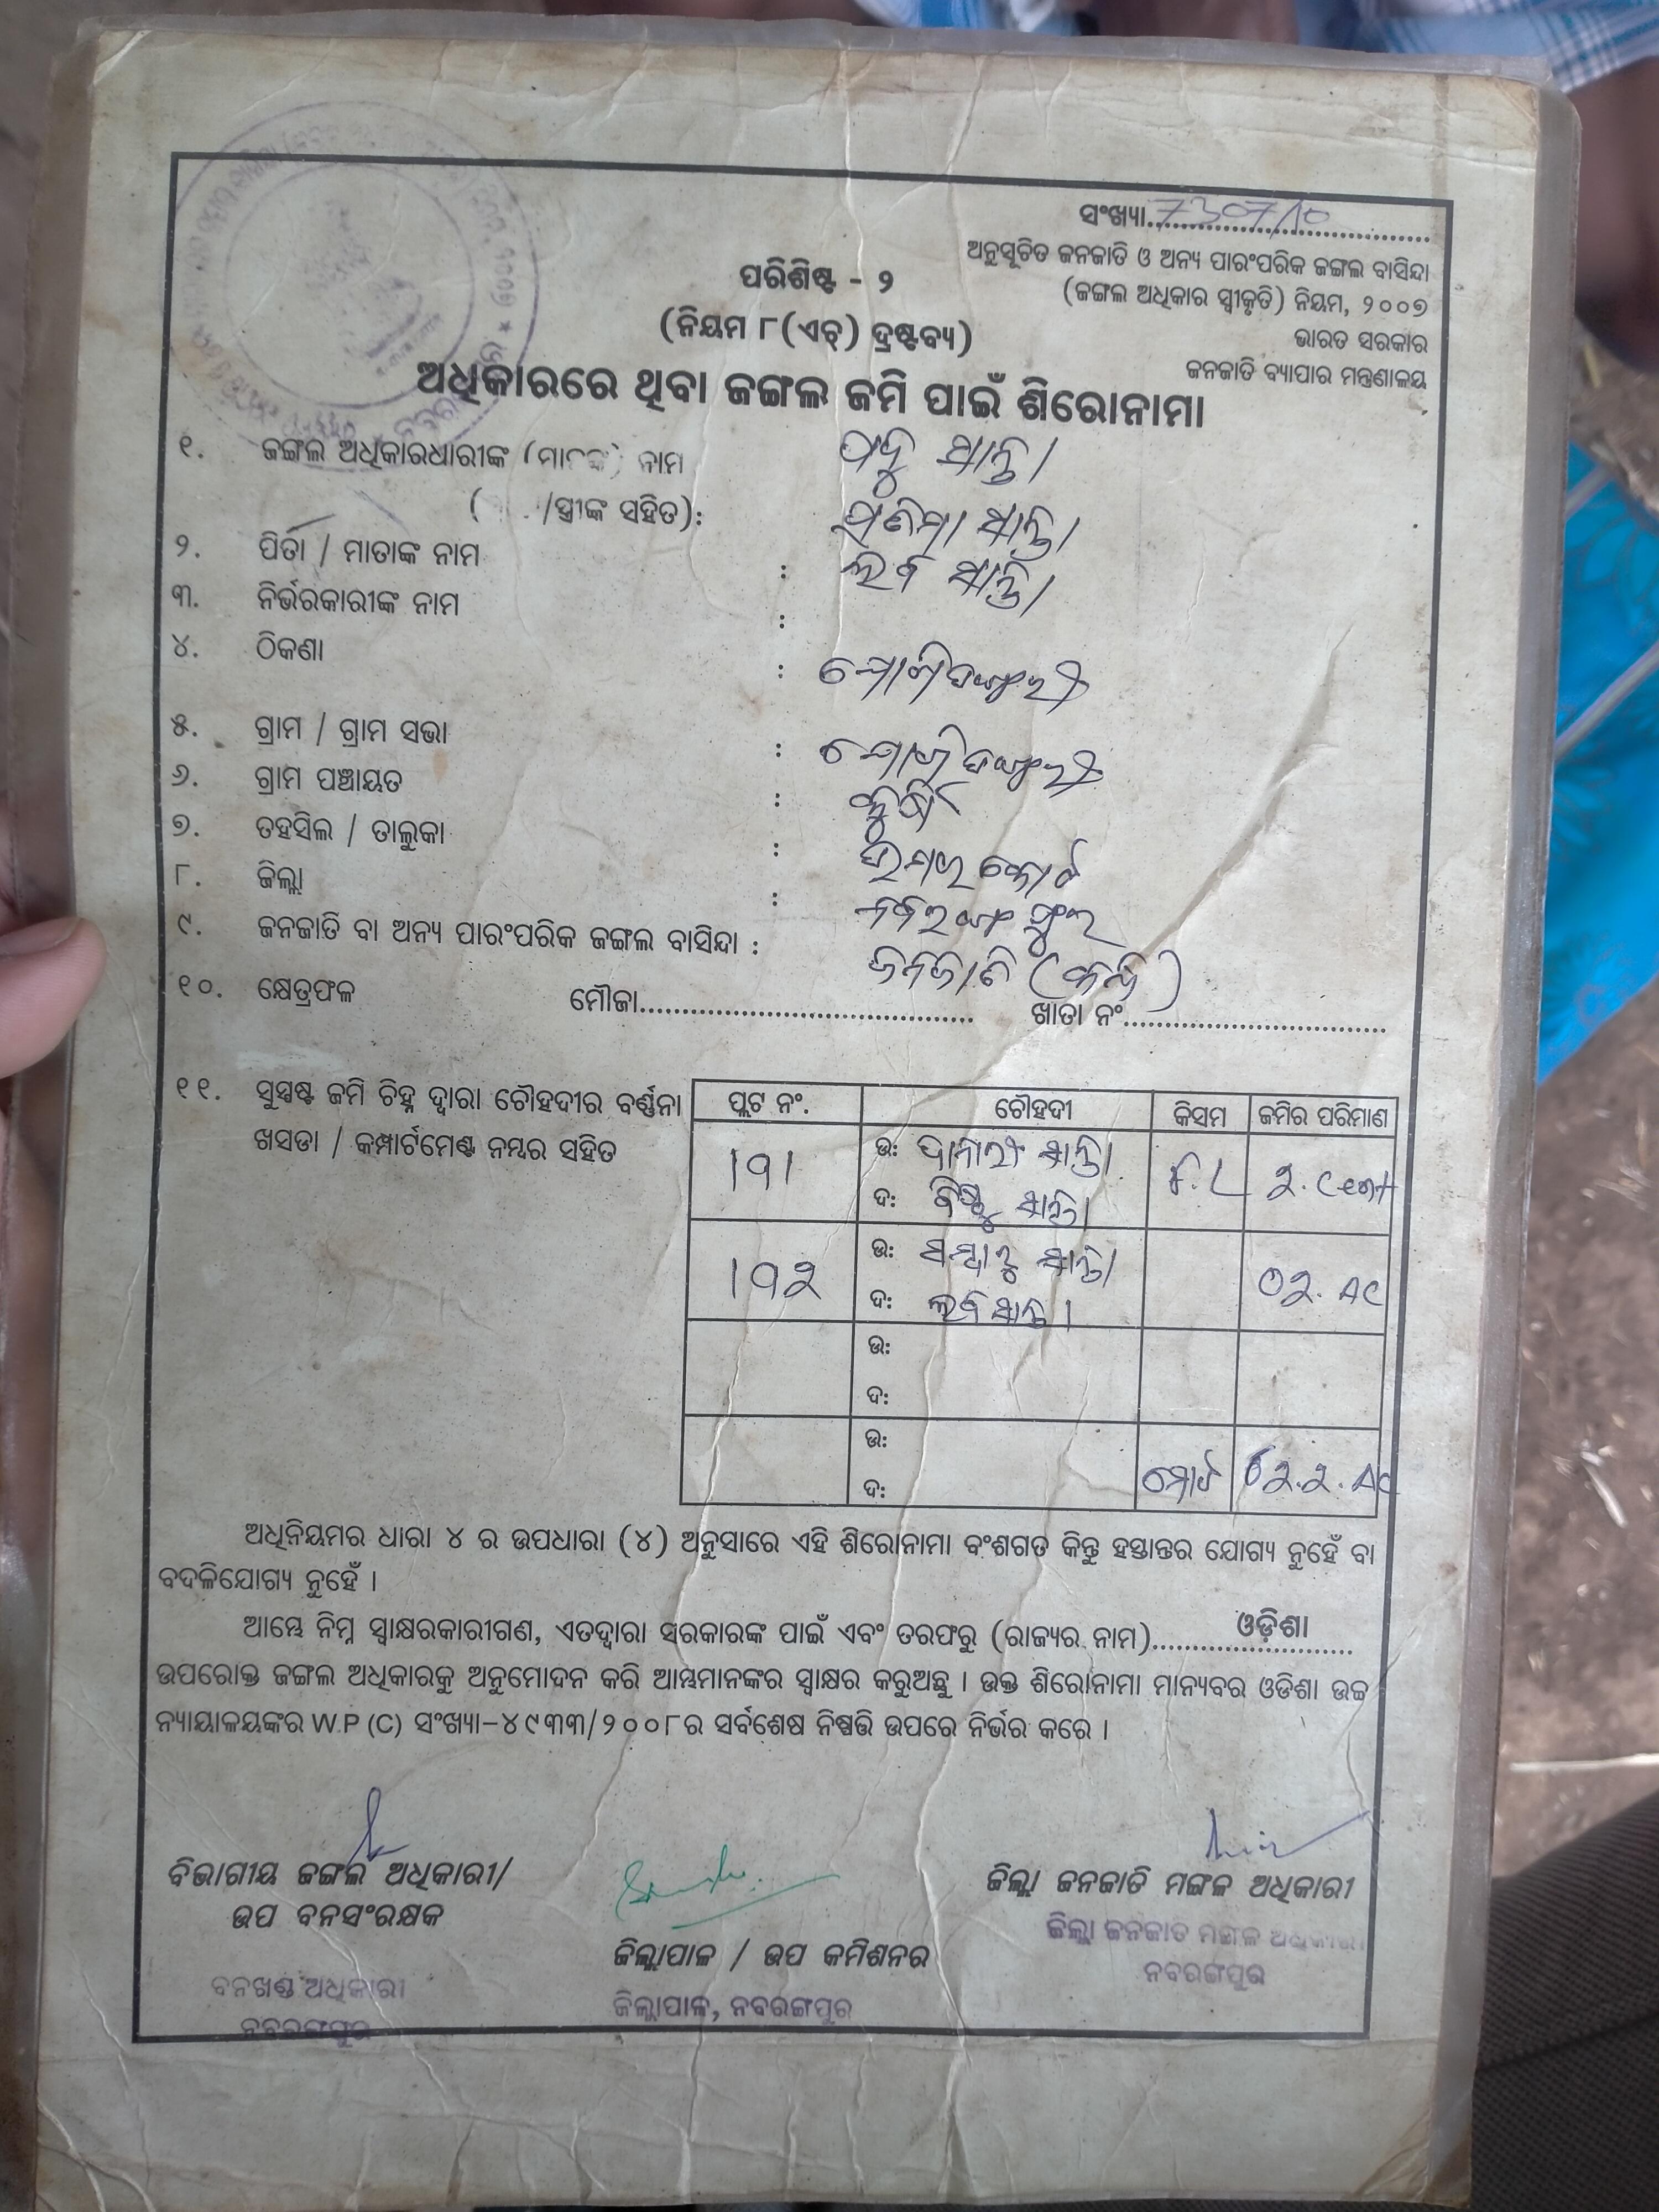 ସଂଖ୍ୟା 7307/10
ଅନୁସୂଚିତ ଜନଜାତି ଓ ଅନ୍ୟ ପାରଂପରିକ ଜଙ୍ଗଲ ବାସିନ୍ଦା
(ଜଙ୍ଗଲ ଅଧିକାର ସ୍ୱୀକୃତି) ନିୟମ, ୨୦୦୭
ଭାରତ ସରକାର
ଜନଜାତି ବ୍ୟାପାର ମନ୍ତ୍ରଣାଳୟ
ପରିଶିଷ୍ଟ - ୨
(ନିୟମ ୮(ଏଚ୍) ଦ୍ରଷ୍ଟବ୍ୟ)
ଅଧିକାରରେ ଥିବା ଜଙ୍ଗଲ ଜମି ପାଇଁ ଶିରୋନାମା
୧. ଜଙ୍ଗଲ ଅଧିକାରଧାରୀଙ୍କ ନାମ ସାନ୍ତା
/ସ୍ତ୍ରୀଙ୍କ ସହିତ): ସାନ୍ତା
୨. ପିତା / ମାତାଙ୍କ ନାମ : ଲବ ସାନ୍ତା
୩. ନିର୍ଭରକାରୀଙ୍କ ନାମ :
୪. ଠିକଣା :
୫. ଗ୍ରାମ / ଗ୍ରାମ ସଭା :
୬. ଗ୍ରାମ ପଞ୍ଚାୟତ :
୭. ତହସିଲ / ତାଲୁକା : ଉମରକୋଟ
୮. ଜିଲ୍ଲା : ନବରଙ୍ଗପୁର
୯. ଜନଜାତି ବା ଅନ୍ୟ ପାରଂପରିକ ଜଙ୍ଗଲ ବାସିନ୍ଦା : ଜନଜାତି
୧୦. କ୍ଷେତ୍ରଫଳ ମୌଜା ଖାତା ନଂ
୧୧. ସୁସ୍ପଷ୍ଟ ଜମି ଚିହ୍ନ ଦ୍ୱାରା ଚୌହଦୀର ବର୍ଣ୍ଣନା
ଖସଡା / କମ୍ପାର୍ଟମେଣ୍ଟ ନମ୍ବର ସହିତ
ପ୍ଲଟ ନଂ. ଚୌହଦୀ କିସମ ଜମିର ପରିମାଣ
୧୭୧ ଉ: ସାନ୍ତା F.L ୨. Cent
ଦ: ବିଷ୍ଣୁ ସାନ୍ତା
୧୭୨ ଉ: ସାନ୍ତା ୦୨. AC
ଦ: ଲବ ସାନ୍ତା
ଉ:
ଦ:
ଉ: ମୋଟ
ଦ:
ଅଧିନିୟମର ଧାରା ୪ ର ଉପଧାରା (୪) ଅନୁସାରେ ଏହି ଶିରୋନାମା ବଂଶଗତ କିନ୍ତୁ ହସ୍ତାନ୍ତର ଯୋଗ୍ୟ ନୁହେଁ ବା
ବଦଳିଯୋଗ୍ୟ ନୁହେଁ ।
ଆମ୍ଭେ ନିମ୍ନ ସ୍ୱାକ୍ଷରକାରୀଗଣ, ଏତଦ୍ୱାରା ସରକାରଙ୍କ ପାଇଁ ଏବଂ ତରଫରୁ (ରାଜ୍ୟର ନାମ) ଓଡ଼ିଶା
ଉପରୋକ୍ତ ଜଙ୍ଗଲ ଅଧିକାରକୁ ଅନୁମୋଦନ କରି ଆମ୍ଭମାନଙ୍କର ସ୍ୱାକ୍ଷର କରୁଅଛୁ । ଉକ୍ତ ଶିରୋନାମା ମାନ୍ୟବର ଓଡିଶା ଉଚ୍ଚ
ନ୍ୟାୟାଳୟଙ୍କର W.P (C) ସଂଖ୍ୟା-୪୯୩୩/୨୦୦୮ର ସର୍ବଶେଷ ନିଷ୍ପତ୍ତି ଉପରେ ନିର୍ଭର କରେ ।
ବିଭାଗୀୟ ଜଙ୍ଗଲ ଅଧିକାରୀ/
ଉପ ବନସଂରକ୍ଷକ
ବନଖଣ୍ଡ ଅଧିକାରୀ
ନବରଙ୍ଗପୁର
ଜିଲ୍ଲାପାଳ / ଉପ କମିଶନର
ଜିଲ୍ଲାପାଳ, ନବରଙ୍ଗପୁର
ଜିଲ୍ଲା ଜନଜାତି ମଙ୍ଗଳ ଅଧିକାରୀ
ଜିଲ୍ଲା ଜନଜାତି ମଙ୍ଗଳ ଅଧିକାରୀ
ନବରଙ୍ଗପୁର